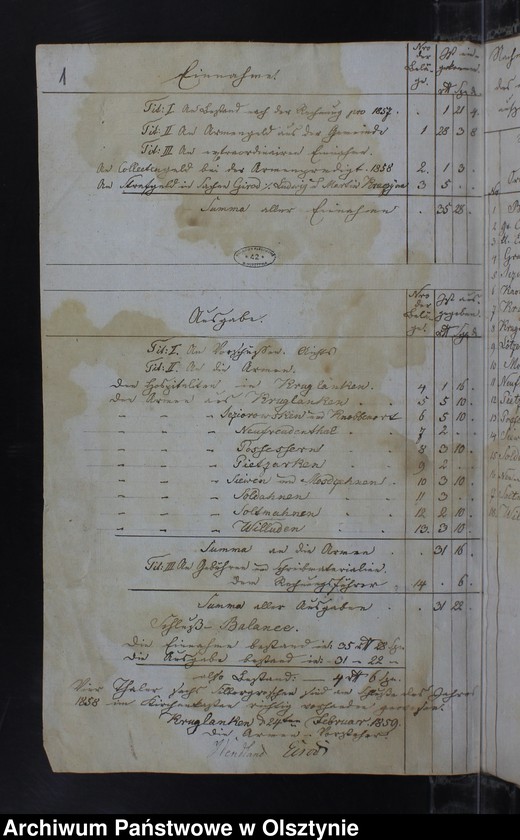 1
Einnahme.
Nro der Belä- ge.
Ist ein- gekommen
rtl Sgr
Tit: I An Bestand nach der Rechnung pro 1857 . . 1 21 4
Tit: II An Armengeld aus der Gemeinde 1 28 3 8
Tit: III An extraordinairen Einnahmen.
An Collectengeld bei der Armenpredigt 1858 2. 1 3 .
An Strafgeld in Sachen Girod Ludwig Martin 3 5 . .
Summa aller Einnahmen . 35 28 .
42
Ausgabe.
Nro der Belä- ge.
Ist aus- gegeben.
rtl Sgr
Tit: I. An Vorschüssen. Nichts
Tit: II. An die Armen.
Den Hospitaliten in Kruglanken. 4 1 16 .
Den Armen aus Kruglanken . . 5 5 10 .
" " " Jeziorowsken und Knobbenort 6 5 10 .
" " " Neufreudenthal . 7 2 . .
" " " Possessern . 8 3 10 .
" " " Pietzarken . 9 2 . .
" " " Siewen und 10 3 10 .
" " " Soldahnen . 11 3 . .
" " " Soltmahnen . 12 2 10 .
" " " Willuden . 13. 3 10 .
Summa an die Armen . . 31 16 .
Tit: III An Gebühren und Schreibmaterialien.
Dem Rechnungsführer 14 . 6 .
Summa aller Ausgaben . . 31 22 .
Schluß-Balance.
Die Einnahme bestand in: 35 rtl 28 Sgr
Die Ausgabe bestand in: 31 – 22 –
also Bestand: — 4 rtl 6 Sgr.
Vier Thaler sechs Silbergroschen sind am Schlusse des Jahres
1858 im Kirchenkasten richtig vorhanden gewesen.
Kruglanken d 24ten Februar 1859.
Die Armen-Vorsteher.
Girod
Archiwum Państwowe w Olsztynie